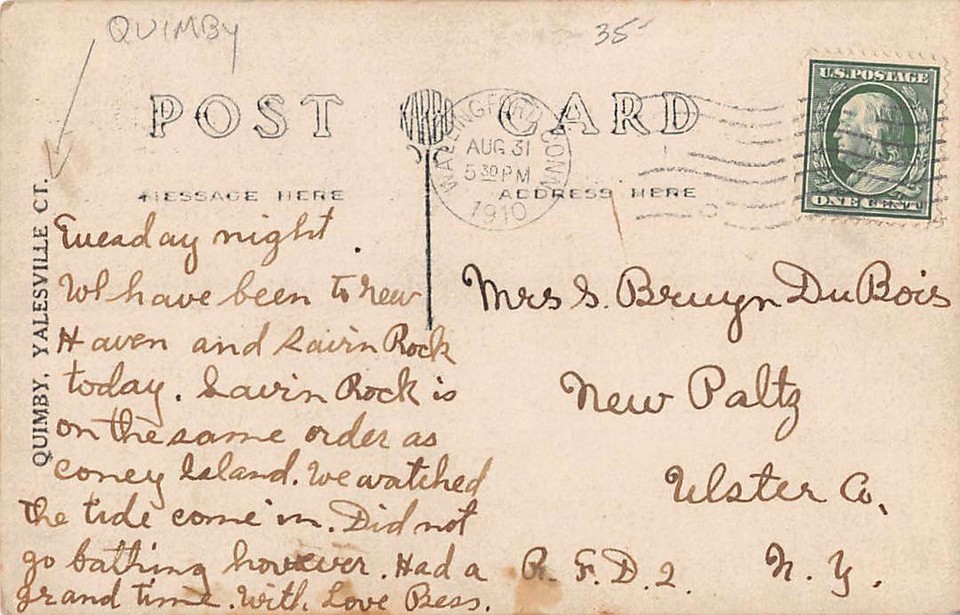 QUIMBY
35
POST CARD
WALLINGFORD CONN
AUG 31
5 30 PM
1910
U.S. POSTAGE
ONE CENT
MESSAGE HERE
ADDRESS HERE
QUIMBY, YALESVILLE CT.
Tuesday night.
We have been to New
Haven and Savin Rock
today. Savin Rock is
on the same order as
coney Island. We watched
the tide come in. Did not
go bathing however. Had a
grand time. With Love Bess.
Mrs S. Bruyn DuBois
New Paltz
Ulster Co.
R. F. D. 2. N. Y.